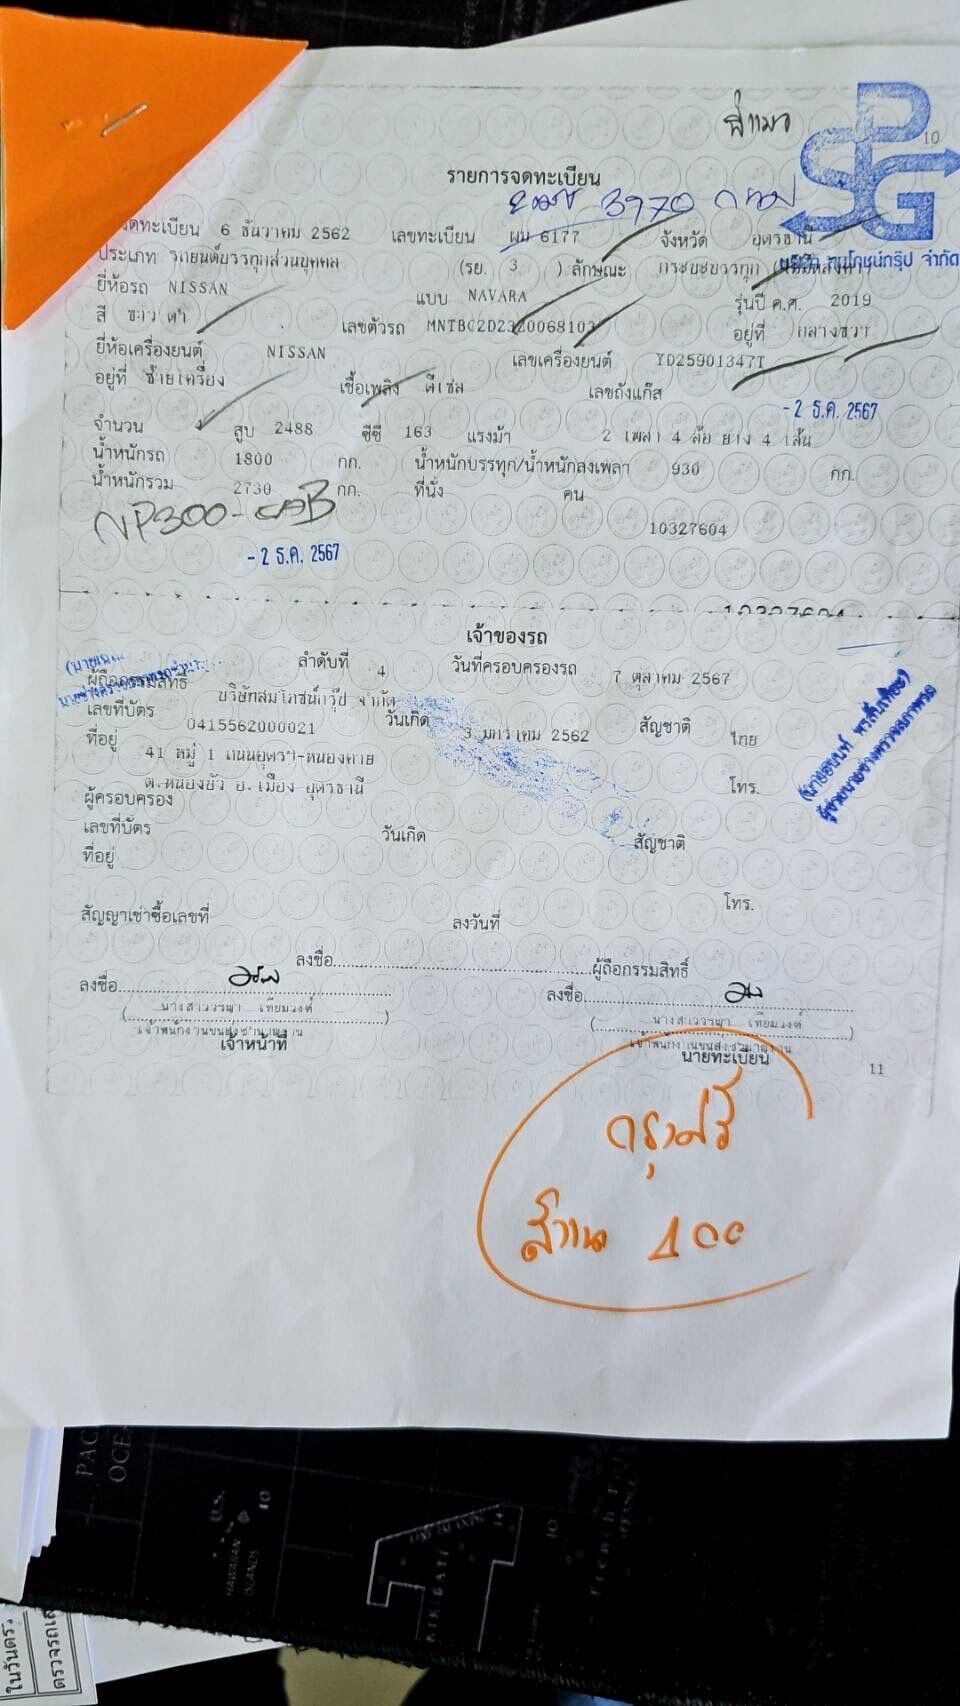 10
รายการจดทะเบียน
3970
จดทะเบียน 6 ธันวาคม 2562 เลขทะเบียน ผม 6177 จังหวัด อุดรธานี
ประเภท รถยนต์บรรทุกส่วนบุคคล (รย. 3 ) ลักษณะ กระบะบรรทุก
บริษัท สมโภชน์กรุ๊ป จำกัด
ยี่ห้อรถ NISSAN แบบ NAVARA รุ่นปี ค.ศ. 2019
สี ขาว ดำ เลขตัวรถ อยู่ที่ กลางขวา
ยี่ห้อเครื่องยนต์ NISSAN เลขเครื่องยนต์ YD25901347T
อยู่ที่ ซ้ายเครื่อง เชื้อเพลิง ดีเซล เลขถังแก๊ส
- 2 ธ.ค. 2567
จำนวน 4 สูบ 2488 ซีซี 163 แรงม้า 2 เพลา 4 ล้อ ยาง 4 เส้น
น้ำหนักรถ 1800 กก. น้ำหนักบรรทุก/น้ำหนักลงเพลา 930 กก.
น้ำหนักรวม 2730 กก. ที่นั่ง คน
NP300-CAB
10327604
- 2 ธ.ค. 2567
10327604
เจ้าของรถ
ลำดับที่ 4 วันที่ครอบครองรถ 7 ตุลาคม 2567
ผู้ถือกรรมสิทธิ์ บริษัทสมโภชน์กรุ๊ป จำกัด
เลขที่บัตร 0415562000021 วันเกิด 3 มกราคม 2562 สัญชาติ ไทย
ที่อยู่ 41 หมู่ 1 ถนนอุดรฯ-หนองคาย
ต.หนองบัว อ.เมือง อุดรธานี โทร.
ผู้ครอบครอง
เลขที่บัตร วันเกิด สัญชาติ
ที่อยู่
โทร.
สัญญาเช่าซื้อเลขที่ ลงวันที่
ลงชื่อ ผู้ถือกรรมสิทธิ์
ลงชื่อ ลงชื่อ
(นางสาววรษา เทียมวงศ์) (นางสาววรษา เทียมวงศ์)
เจ้าพนักงานขนส่งชำนาญงาน เจ้าพนักงานขนส่งชำนาญงาน
เจ้าหน้าที่ นายทะเบียน
11
กรุงศรี
สำเนา 100
PAC
OCEA
U.S.
HAWAIIAN
ISLANDS
10
KIRIBATI
10
ในวันตรว
ตรวจรถเส